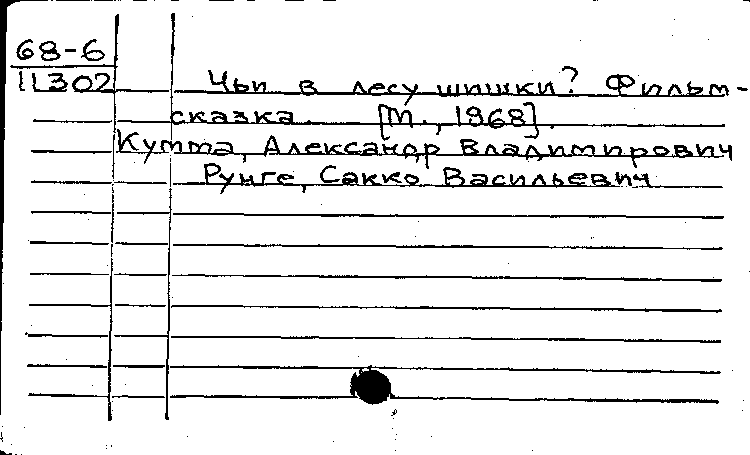 68-6
11302
Чьи в лесу шишки? Фильм-
сказка. [М., 1968].
Кумма, Александр Владимирович
Рунге, Сакко Васильевич